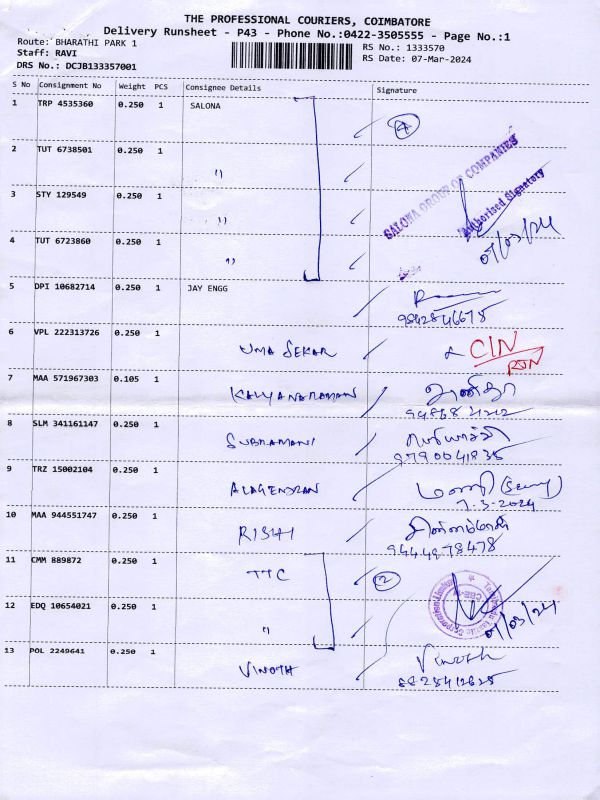 THE PROFESSIONAL COURIERS, COIMBATORE
Delivery Runsheet - P43 - Phone No.:0422-3505555 - Page No.:1
Route: BHARATHI PARK 1
Staff: RAVI
DRS No.: DCJB133357001
RS No.: 1333570
RS Date: 07-Mar-2024
S No Consignment No Weight PCS Consignee Details Signature
1 TRP 4535360 0.250 1 SALONA 4
2 TUT 6738501 0.250 1 "
SALONA GROUP OF COMPANIES
Authorised Signatory
3 STY 129549 0.250 1 "
07/03/24
4 TUT 6723860 0.250 1 "
5 DPI 10682714 0.250 1 JAY ENGG
9842846678
6 VPL 222313726 0.250 1 UMA SEKAR CIN
RTN
7 MAA 571967303 0.105 1 KALYANARAMAN
8 SLM 341161147 0.250 1 SUBRAMANI
9790041835
9 TRZ 15002104 0.250 1 ALAGENDRAN மணி
7-3-2024
10 MAA 944551747 0.250 1 RISHI
9444978478
11 CMM 889872 0.250 1 TTC 2
12 EDQ 10654021 0.250 1 "
07/03/24
13 POL 2249641 0.250 1 VINOTH Vinoth